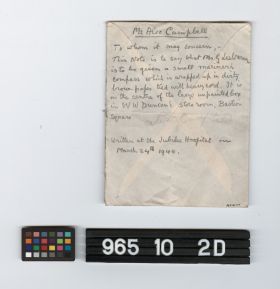 Mr Alec Campbell
To whom it may concern,-
This Note is to say that Mr
is to be given a small mariners
compass which is wrapped up in dirty
brown paper tied with heavy cord. It is
in the centre of the large unpainted box
in W W Duncan's store room, Bastion
Square
Written at the Jubilee Hospital on
March 24th 194
965 10 2D